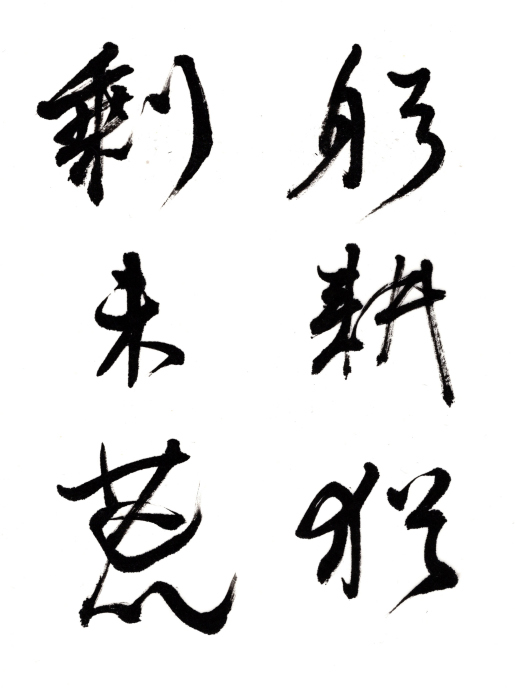 躬耕猶
剩未荒